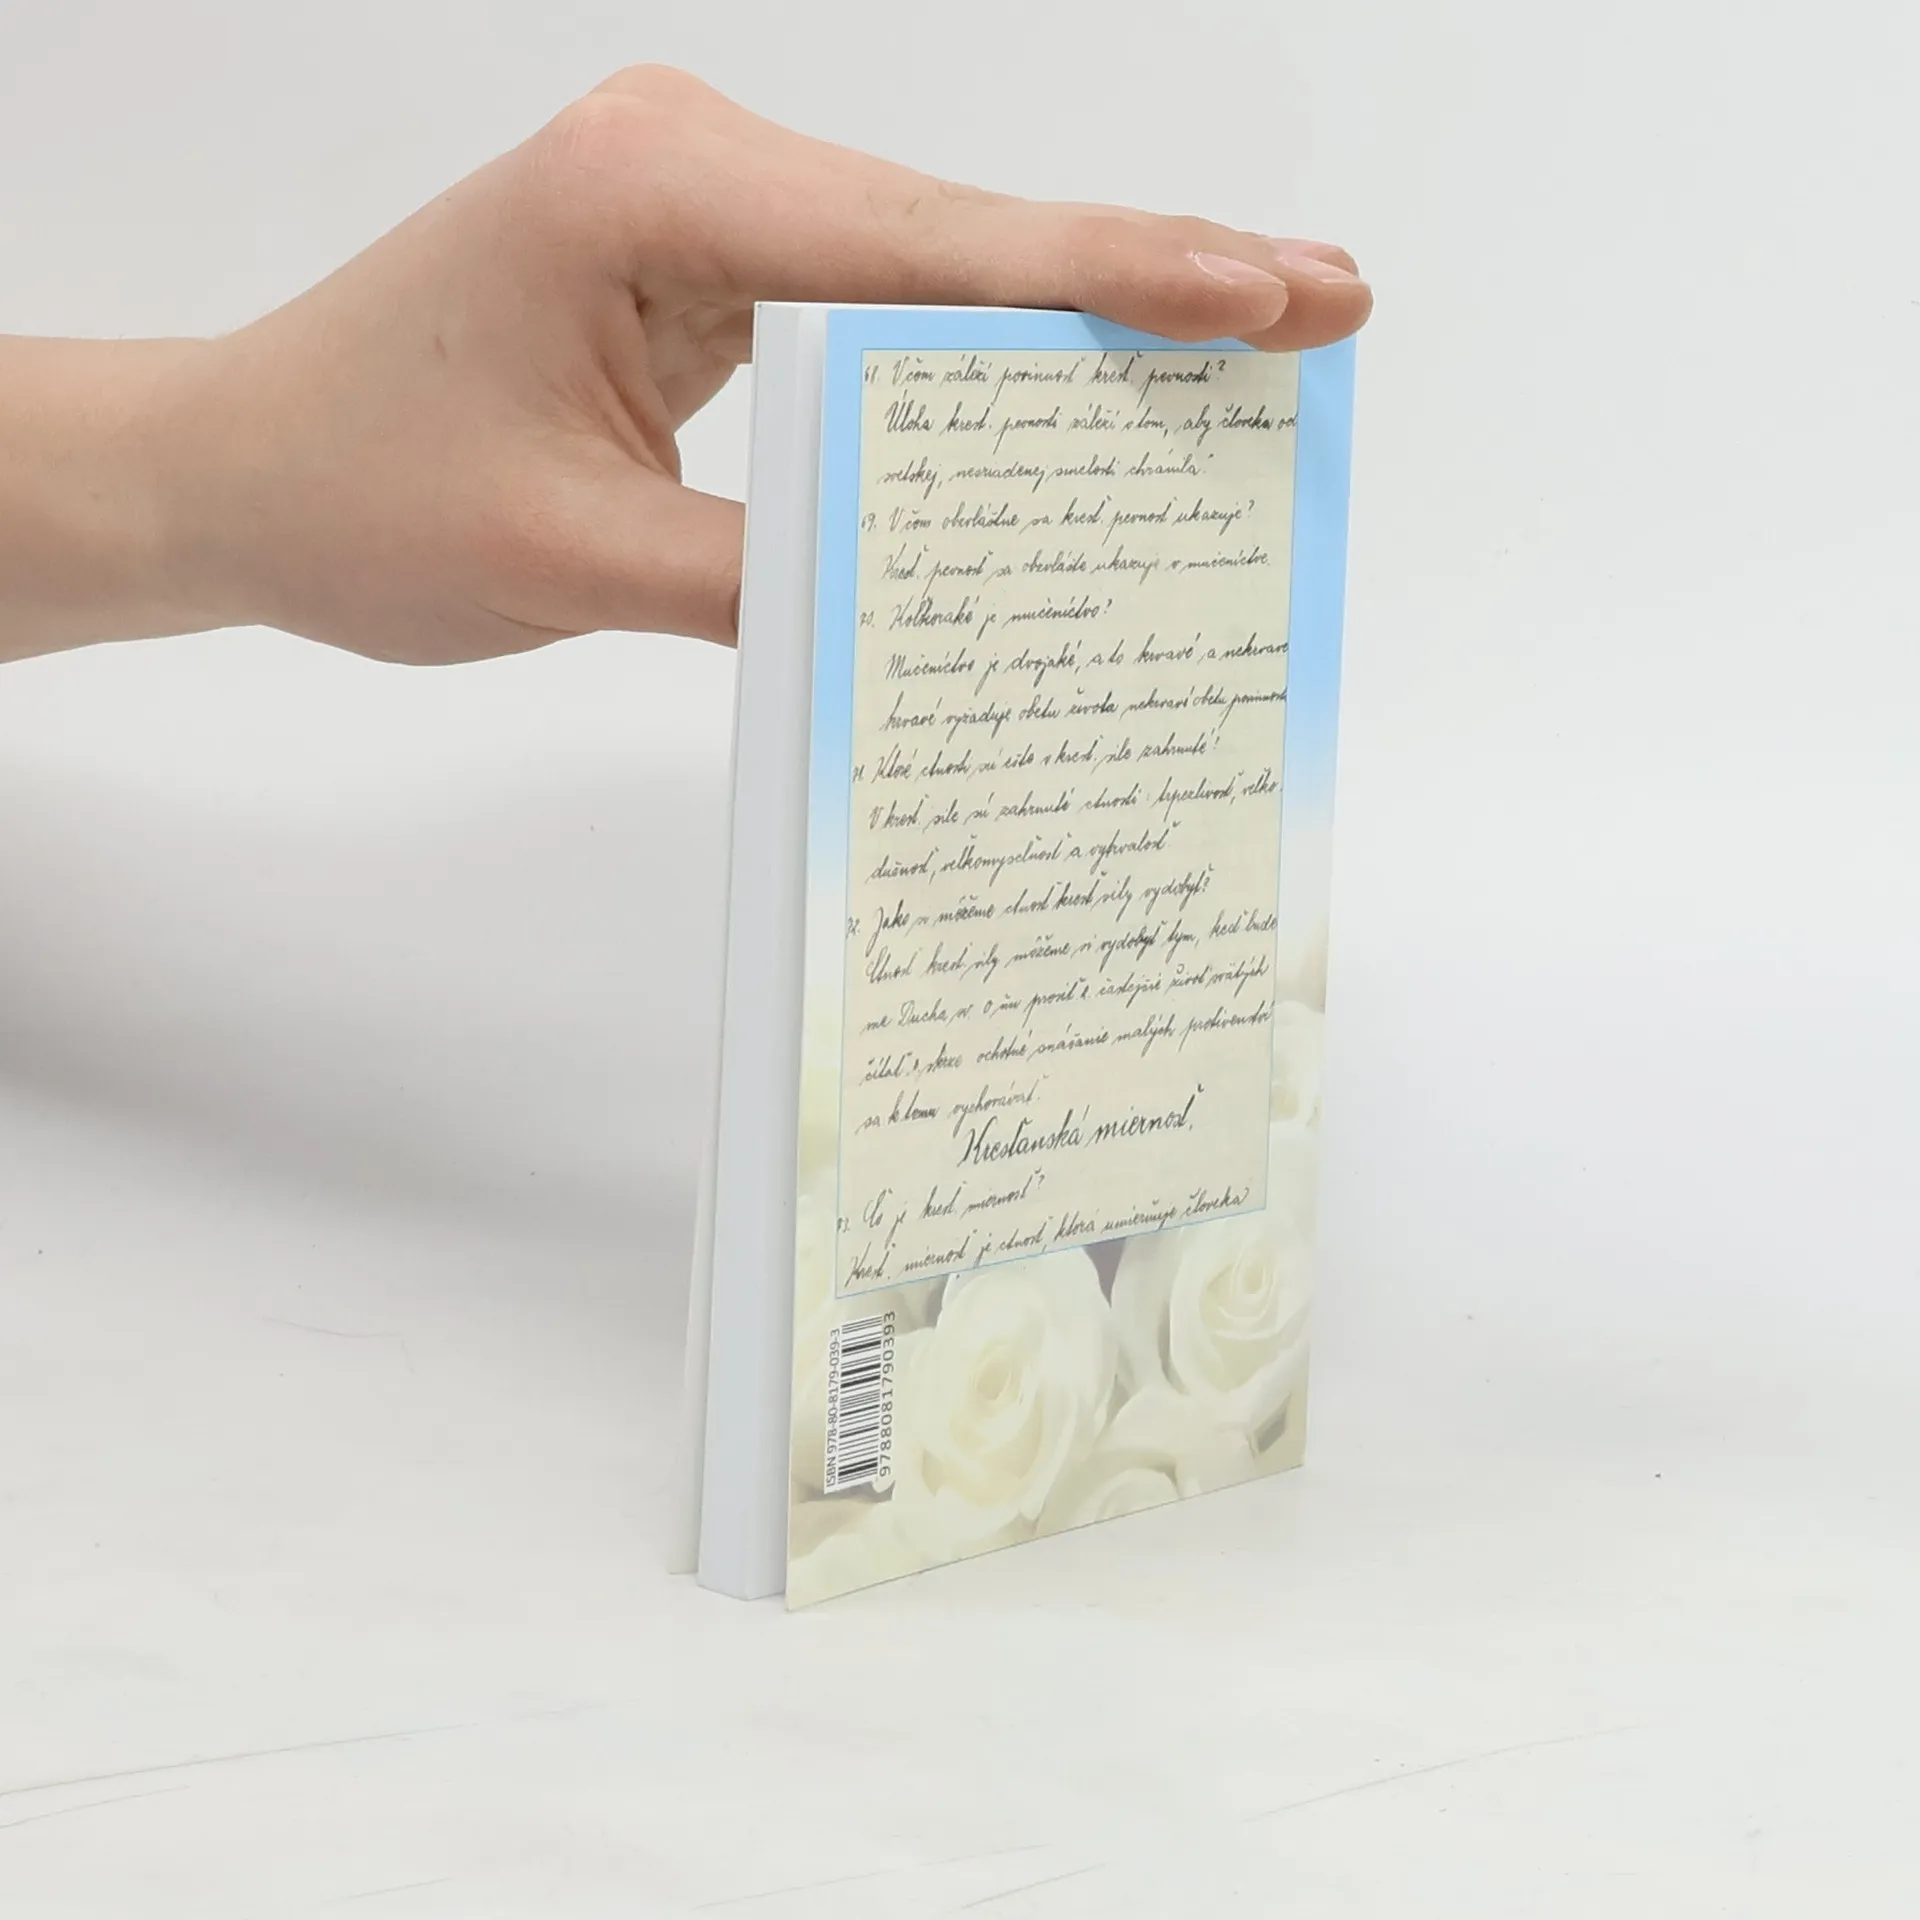 68. V čom záleží povinnosť kresť. pevnosti?
Úloha kresť. pevnosti záleží v tom, aby človeka od
svetskej, nesriadenej smelosti chránila.
69. V čom obzvláštne sa kresť. pevnosť ukazuje?
Kresť. pevnosť sa obzvlášte ukazuje v mučeníctve.
70. Koľkoraké je mučeníctvo?
Mučeníctvo je dvojaké, a to krvavé a nekrvavé
krvavé vyžaduje obetu života nekrvavé obetu povinnosti
71. Ktoré ctnosti sú ešte v kresť. sile zahrnuté?
V kresť. sile sú zahrnuté ctnosti: trpezlivosť, veľko-
dušnosť, veľkomyseľnosť a vytrvalosť.
72. Jako si môžeme ctnosť kresť. sily vydobyť?
Ctnosť kresť. sily môžeme si vydobyť tým, keď bude
me Ducha sv. o ňu prosiť, častejšie život svätých
čítať, skrze ochotné snášanie malých protivenství
sa k tomu vychovávať.
Kresťanská miernosť.
73. Čo je kresť. miernosť?
Kresť. miernosť je ctnosť, ktorá umierňuje človeka
ISBN 978-80-8179-039-3
9788081790393